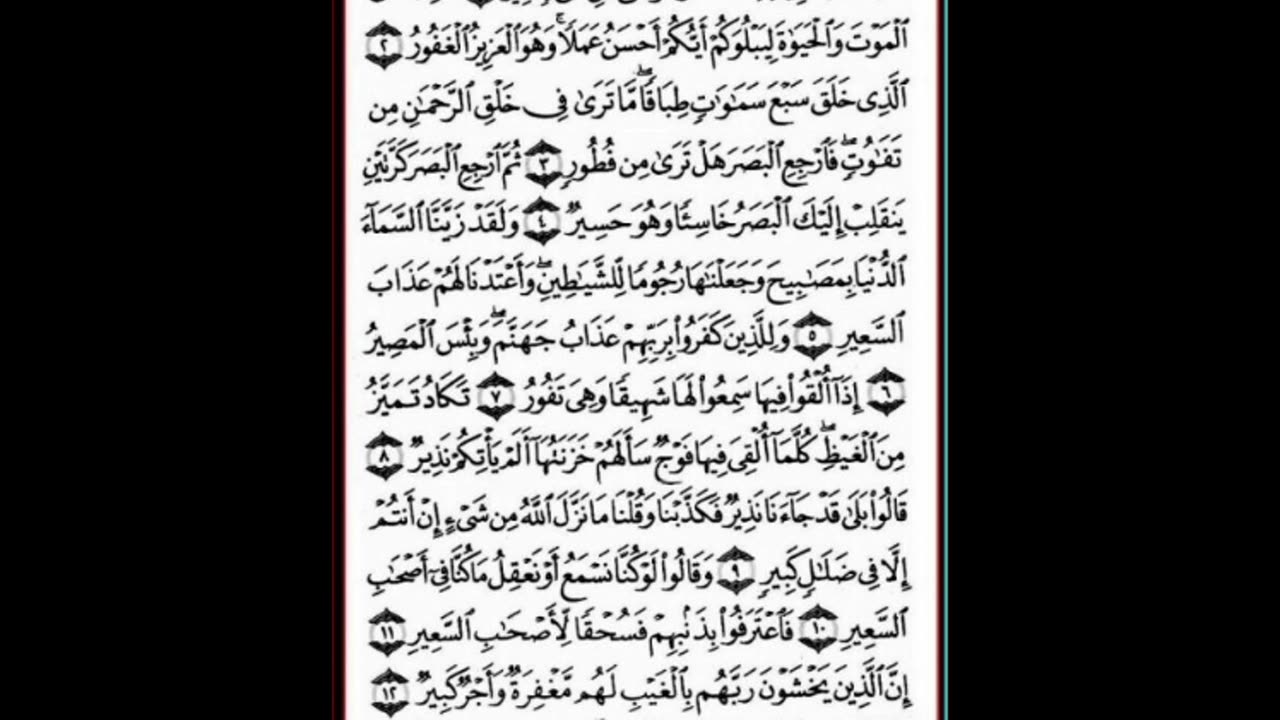 ٱلۡمَوۡتَ وَٱلۡحَيَوٰةَ لِيَبۡلُوَكُمۡ أَيُّكُمۡ أَحۡسَنُ عَمَلٗاۚ وَهُوَ ٱلۡعَزِيزُ ٱلۡغَفُورُ ٢
ٱلَّذِي خَلَقَ سَبۡعَ سَمَٰوَٰتٖ طِبَاقٗاۖ مَّا تَرَىٰ فِي خَلۡقِ ٱلرَّحۡمَٰنِ مِن
تَفَٰوُتٖۖ فَٱرۡجِعِ ٱلۡبَصَرَ هَلۡ تَرَىٰ مِن فُطُورٖ ٣ ثُمَّ ٱرۡجِعِ ٱلۡبَصَرَ كَرَّتَيۡنِ
يَنقَلِبۡ إِلَيۡكَ ٱلۡبَصَرُ خَاسِئٗا وَهُوَ حَسِيرٞ ٤ وَلَقَدۡ زَيَّنَّا ٱلسَّمَآءَ
ٱلدُّنۡيَا بِمَصَٰبِيحَ وَجَعَلۡنَٰهَا رُجُومٗا لِّلشَّيَٰطِينِۖ وَأَعۡتَدۡنَا لَهُمۡ عَذَابَ
ٱلسَّعِيرِ ٥ وَلِلَّذِينَ كَفَرُواْ بِرَبِّهِمۡ عَذَابُ جَهَنَّمَۖ وَبِئۡسَ ٱلۡمَصِيرُ
٦ إِذَآ أُلۡقُواْ فِيهَا سَمِعُواْ لَهَا شَهِيقٗا وَهِيَ تَفُورُ ٧ تَكَادُ تَمَيَّزُ
مِنَ ٱلۡغَيۡظِۖ كُلَّمَآ أُلۡقِيَ فِيهَا فَوۡجٞ سَأَلَهُمۡ خَزَنَتُهَآ أَلَمۡ يَأۡتِكُمۡ نَذِيرٞ ٨
قَالُواْ بَلَىٰ قَدۡ جَآءَنَا نَذِيرٞ فَكَذَّبۡنَا وَقُلۡنَا مَا نَزَّلَ ٱللَّهُ مِن شَيۡءٍ إِنۡ أَنتُمۡ
إِلَّا فِي ضَلَٰلٖ كَبِيرٖ ٩ وَقَالُواْ لَوۡ كُنَّا نَسۡمَعُ أَوۡ نَعۡقِلُ مَا كُنَّا فِيٓ أَصۡحَٰبِ
ٱلسَّعِيرِ ١٠ فَٱعۡتَرَفُواْ بِذَنۢبِهِمۡ فَسُحۡقٗا لِّأَصۡحَٰبِ ٱلسَّعِيرِ ١١
إِنَّ ٱلَّذِينَ يَخۡشَوۡنَ رَبَّهُم بِٱلۡغَيۡبِ لَهُم مَّغۡفِرَةٞ وَأَجۡرٞ كَبِيرٞ ١٢